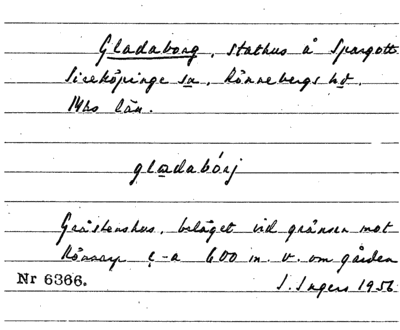 Gladaborg, stathus å Spargott
Sireköpinge sn, Rönnebergs hd.
Mhs län.
gladabórj
Gråstenshus, beläget vid gränsen mot
c-a 600 m. v. om gården
Nr 6366.
I. Ingers 1956